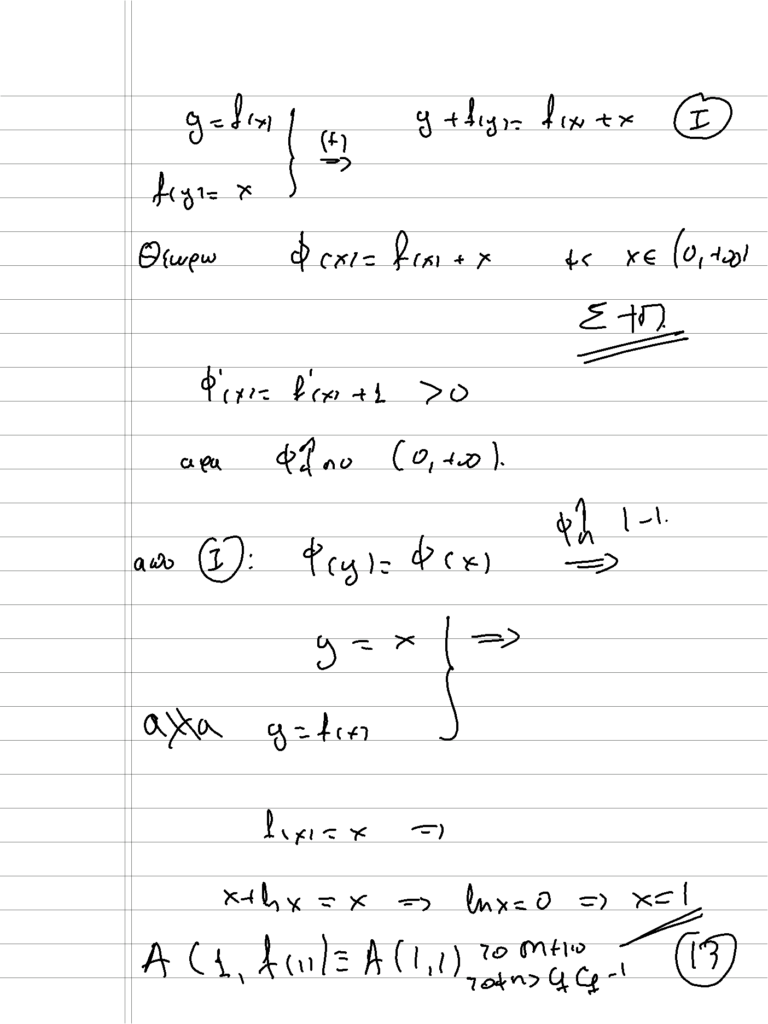 y = f(x) } (+) ⇒ y + f(y) = f(x) + x (I)
f(y) = x
Θεωρω φ(x) = f(x) + x με x ∈ (0, +∞)
φ'(x) = f'(x) + 1 > 0
αρα φ↑ στο (0, +∞).
απο (I): φ(y) = φ(x) φ↑ 1-1. ⇒
y = x } ⇒
αλλα y = f(x)
f(x) = x ⇒
x + ln x = x ⇒ ln x = 0 ⇒ x = 1
A(1, f(1)) ≡ A(1,1) το σημειο
τομης Cf Cf⁻¹ (13)